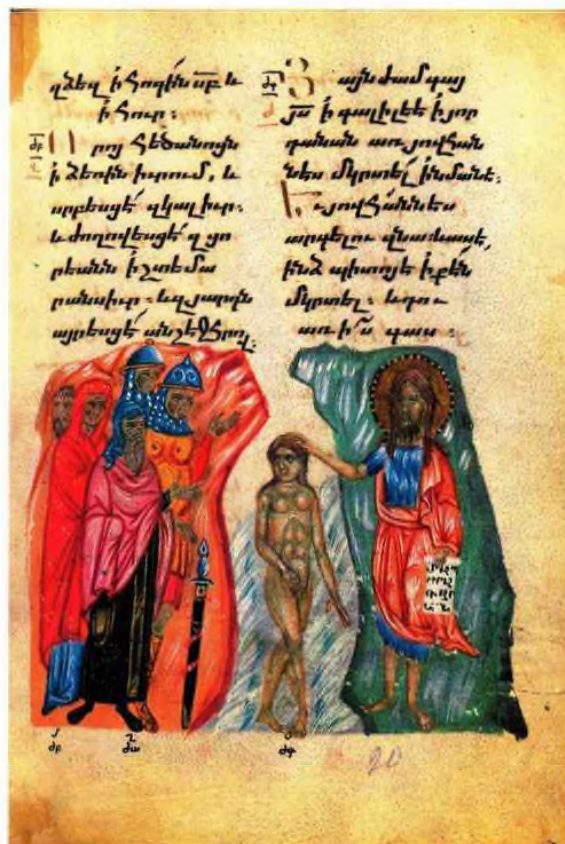 զձեզ ի հոգին սբ և
ի հուր։
ժբ
Որոյ հեծանոցն
ի ձեռին իւրում, և
սրբեսցէ զկալ իւր։
և ժողովեսցէ զցո
րեանն ի շտեմա
րանս իւր։ և զյարդն
այրեսցէ անշէջ հրով։
ժգ
Յայնժամ գայ
յս ի գալիլեէ ի յոր
դանան առ յովհան
նես մկրտել ի նմանէ։
Եւ յովհաննես
արգելու զնա։ և ասէ,
ինձ պիտոյ է ի քէն
մկրտել։ և դու
առ ի՞ս գաս։
ժբ ժա ժգ
20